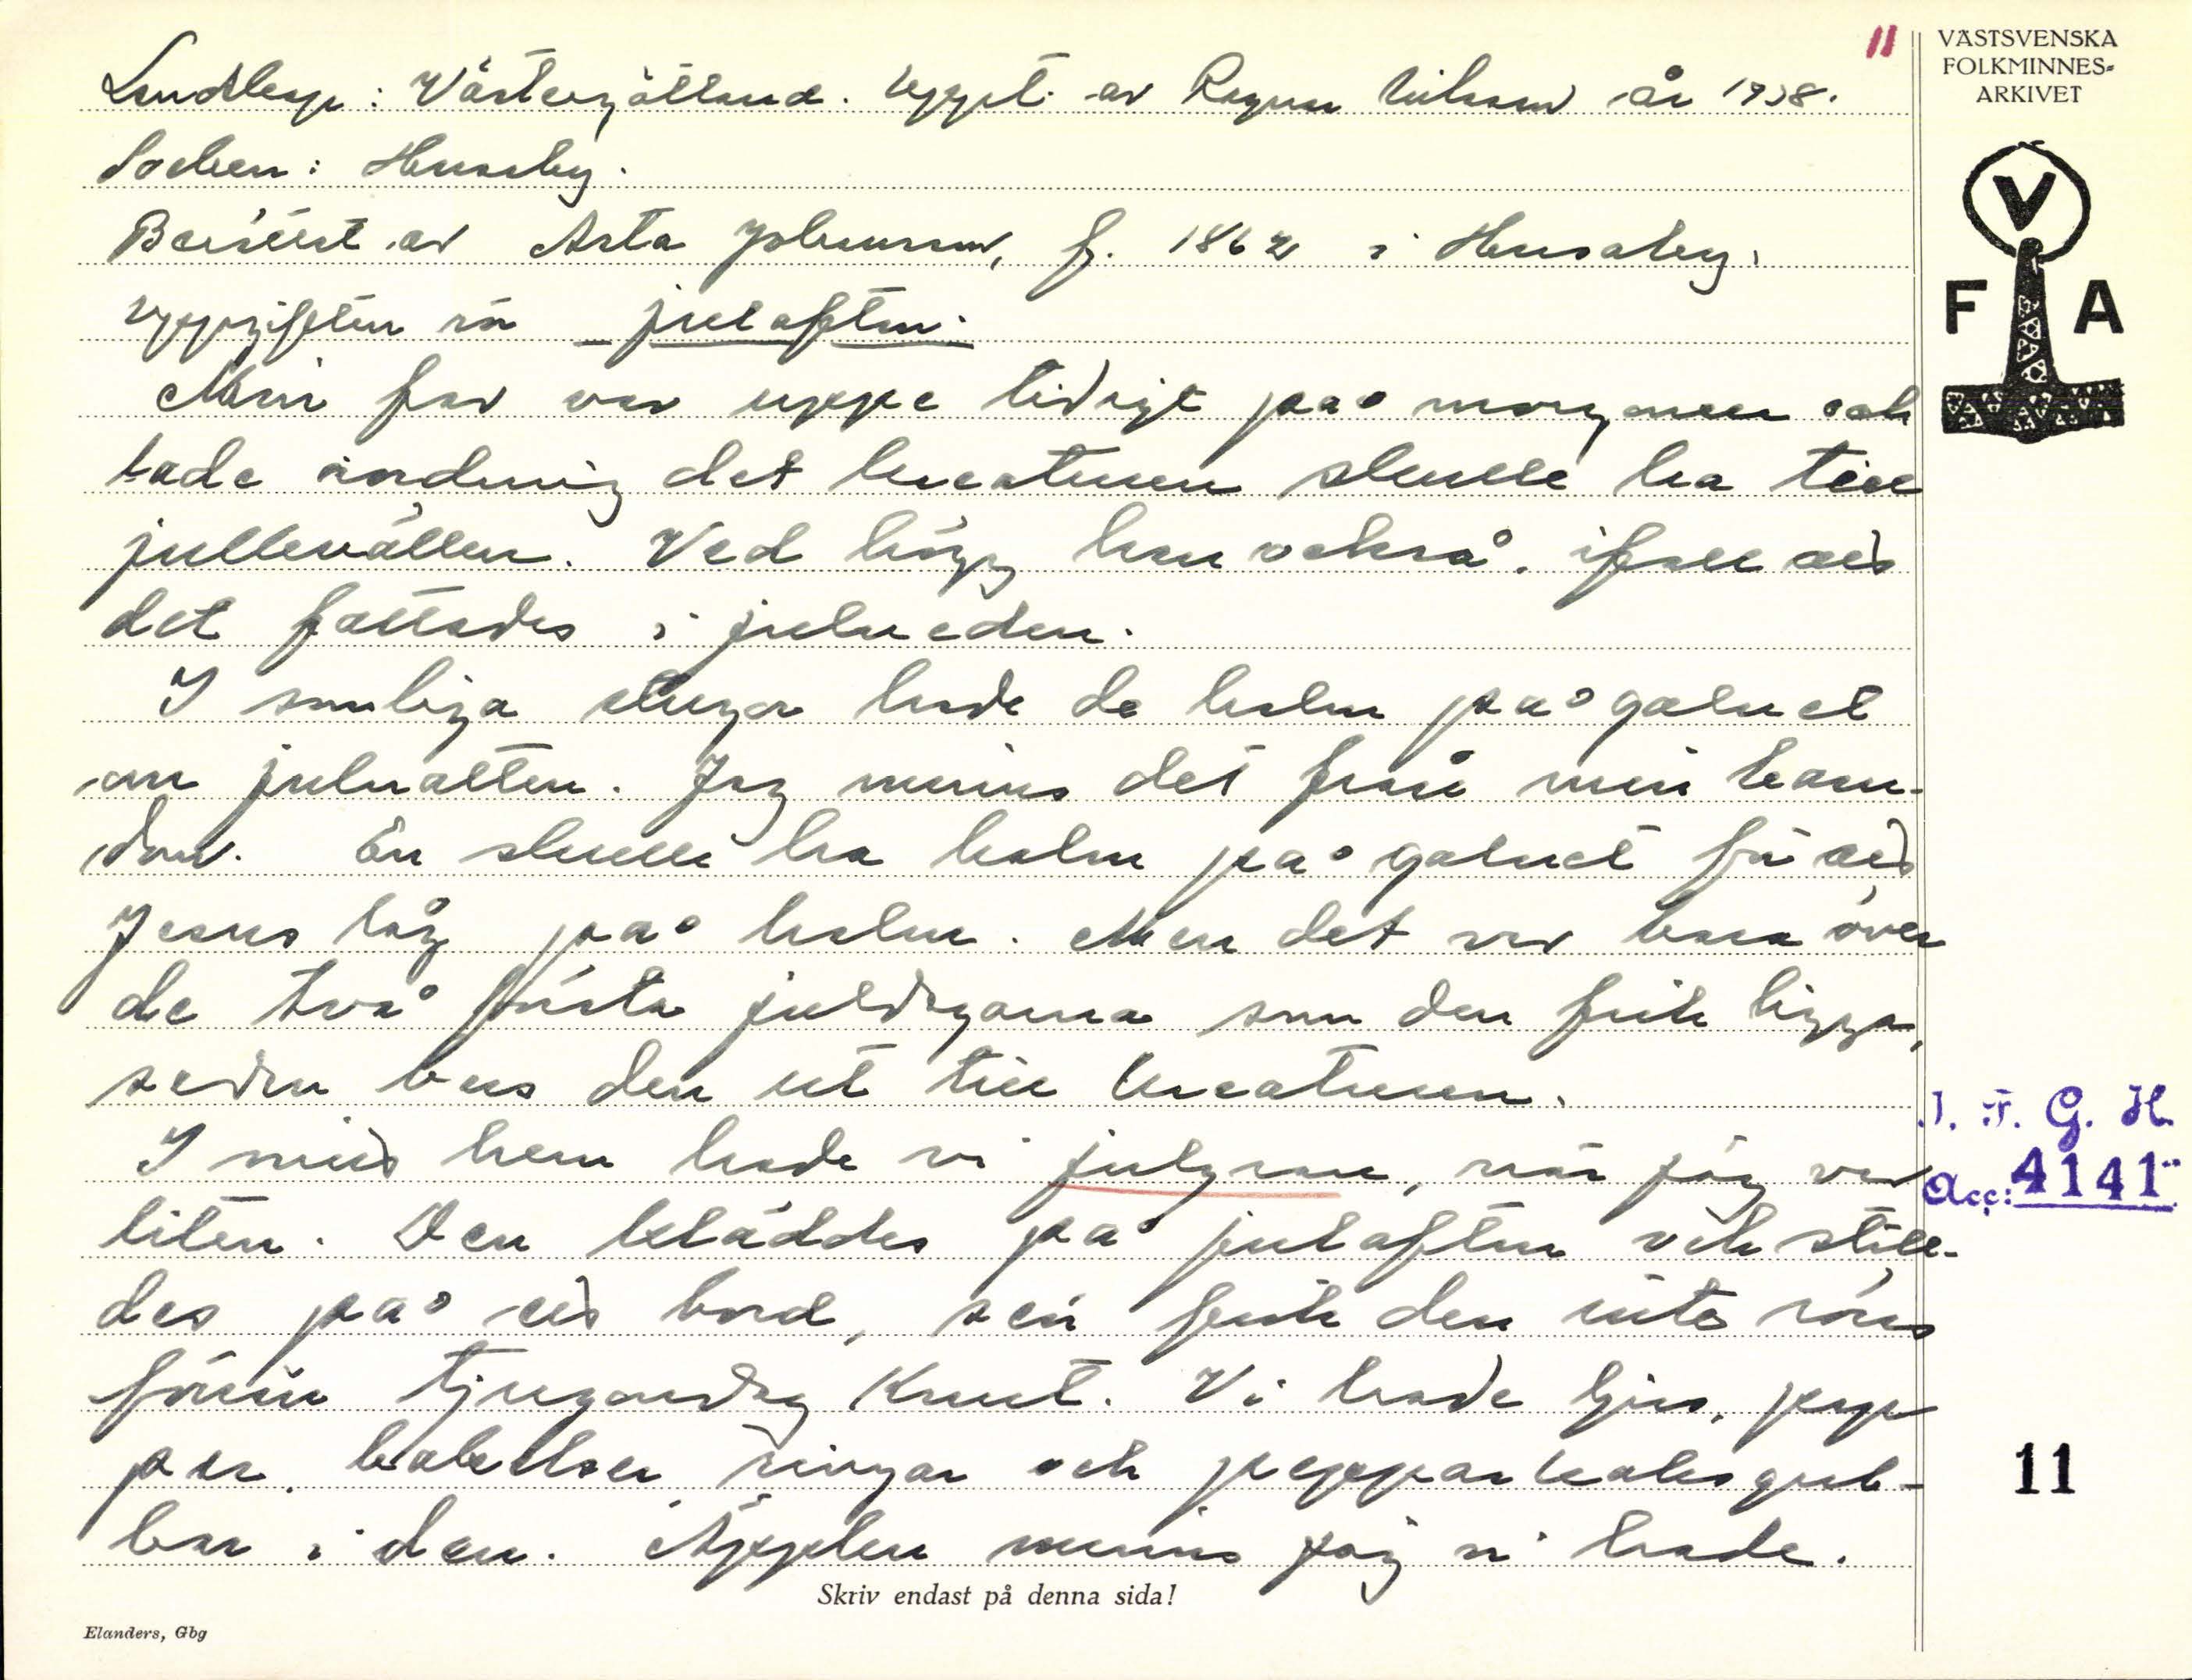 11
VÄSTSVENSKA
FOLKMINNES-
ARKIVET
Landskap: Västergötland. Uppt. av Ragnar Nilsson år 1938.
Socken: Husaby.
Berättat av Asta Johansson, f. 1862 i Husaby.
Uppgiften rör julafton.
V
F A
Min far var uppe tidigt på morgonen och
lade ordning det kreaturen skulle ha till
julkvällen. Ved högg han också, ifall att
det fattades i julveden.
I somliga stugor hade de halm på golvet
om julnatten. Jag minns det från min barn-
dom. En skulle ha halm på golvet för att
Jesus låg på halm. Men det var bara över
de två första juldagarna som den fick ligga,
sedan bars den ut till kreaturen.
I mitt hem hade vi julgran, när jag var
liten. Den kläddes på julafton och ställ-
des på ett bord, sen fick den inte röras
förrän tjugondag Knut. Vi hade ljus, pap-
per, bakelser, ringar och pepparkaksgub-
bar i den. Äpplen minns jag vi hade.
I. F. G. H.
Acc: 4141
11
Skriv endast på denna sida!
Elanders, Gbg